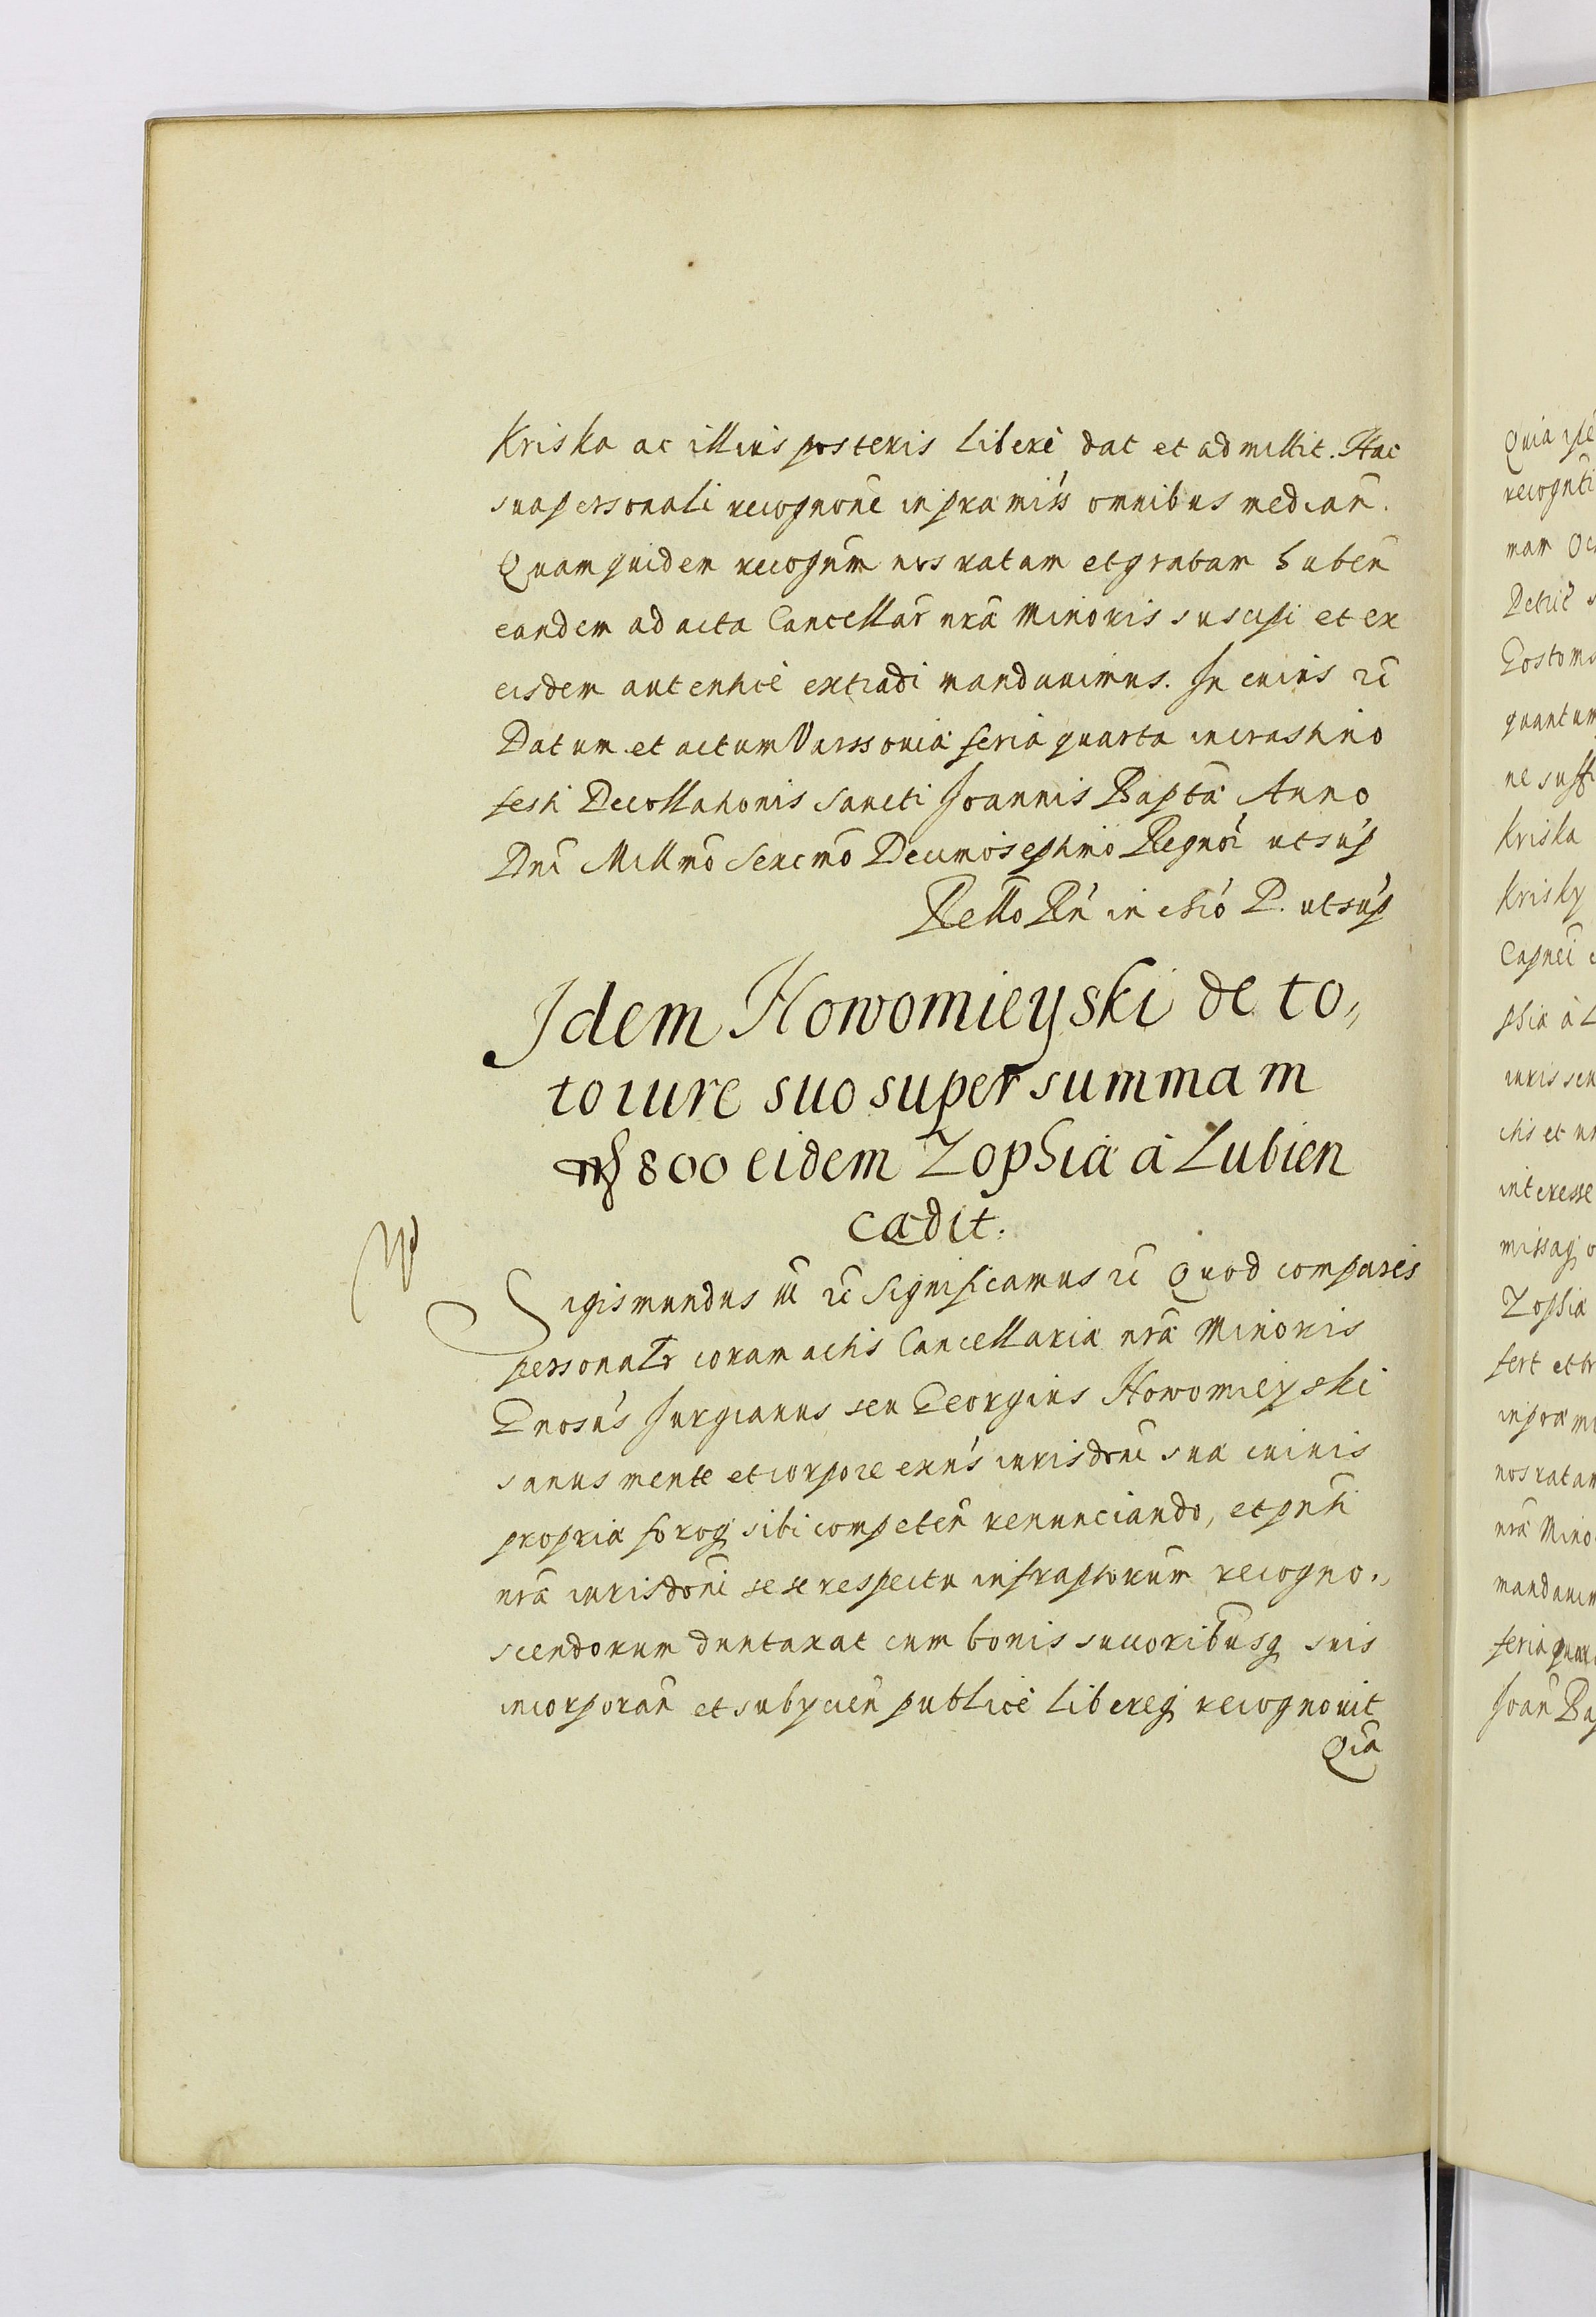 Kriska ac illius posteris liberè dat et admittit. Hac
sua personali recognone in præmiss omnibus median̄.
Quam quidem recognm̄ nos ratam et gratam haben̄
eandem ad acta Cancellar̄ nrā Minoris suscipi et ex
eisdem autenticè extradi mandauimus. In cuius rē
Datum et actum Varssouiæ feria quarta in crastino
festi Decollationis Sancti Joannis Baptæ Anno
Dni Millmō Sexcmō Decimoseptimo Regnor̄ ut sup
Rello Rn̄ in P. ut sup
Idem Nowomieyski de to„
to iure suo super summam
mḡ 800 eidem Zophiæ à Lubien
cædit.
Sigismundus iii rē Significamus rē Quod comparēs
personalr̄ coram actis Cancellariæ nrā Minoris
Gnosus Jurgianus seu Georgius Nowomieyski
sanus mente et corpore exūs iurisdoni suæ cuiuis
propriæ foroq; sibi competen̄ renunciando, et pn̄ti
nrā iurisdoni sese respectu infraptorum recogno„
scendorum duntaxat cum bonis succoribusq; suis
incorporan̄ et subyicien̄ publicè libereq; recognouit
Qia
Quia
recognti
mam
Petric
Gostoms
quantum
ne suffi
Kriska
Krisky
Capnei
phiæ à L
iuris seu
ctis et
interesse
missaq;
Zophiæ
fert et tr
in præmi
nos ratam
nrā Mino
mandauim
feria quar
Joan̄ Bap